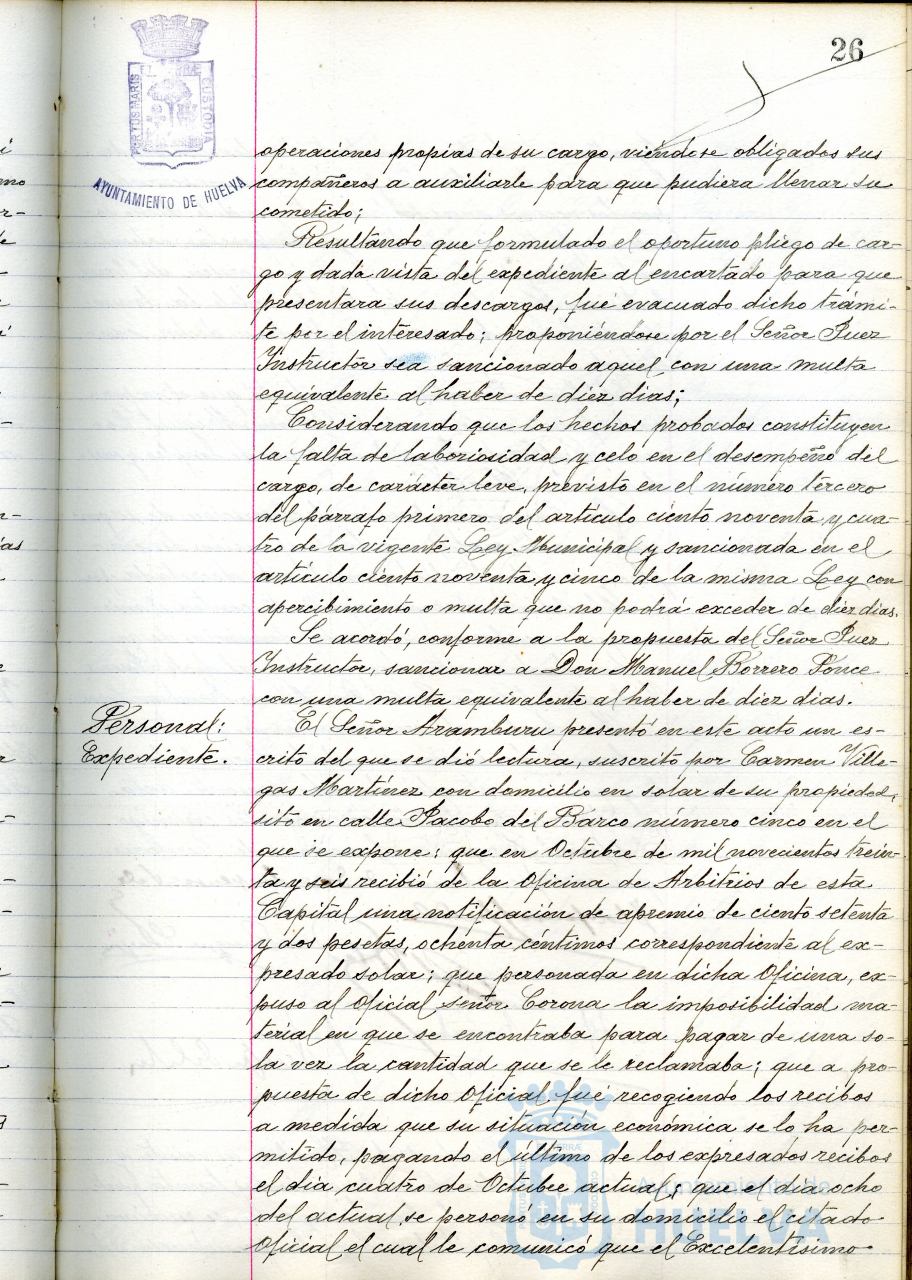 26
PORTUS MARIS
ET TERRÆ
CUSTODIA
AYUNTAMIENTO DE HUELVA
operaciones propias de su cargo, viéndose obligados sus
compañeros a auxiliarle para que pudiera llenar su
cometido;
Resultando que formulado el oportuno pliego de car-
go y dada vista del expediente al encartado para que
presentara sus descargos, fué evacuado dicho trámi-
te por el interesado; proponiéndose por el Señor Juez
Instructor sea sancionado aquel con una multa
equivalente al haber de diéz dias;
Considerando que los hechos probados constituyen
la falta de laboriosidad y celo en el desempeño del
cargo, de carácter leve, previsto en el número tercero
del párrafo primero del artículo ciento noventa y cua-
tro de la vigente Ley Municipal y sancionada en el
artículo ciento noventa y cinco de la misma Ley con
apercibimiento o multa que no podrá exceder de diéz dias.
Se acordó, conforme a la propuesta del Señor Juez
Instructor, sancionar a Don Manuel Borrero Ponce
con una multa equivalente al haber de diez dias.
Personal:
Expediente.
El Señor Aramburu presentó en este acto un es-
crito del que se dió lectura, suscrito por Carmen Ville-
gas Martínez con domicilio en solar de su propiedad,
sito en calle Jacobo del Barco número cinco en el
que se expone: que en Octubre de mil novecientos trein-
ta y seis recibió de la Oficina de Arbitrios de esta
Capital una notificación de apremio de ciento setenta
y dos pesetas, ochenta céntimos correspondiente al ex-
presado solar; que personada en dicha Oficina, ex-
puso al Oficial señor Corona la imposibilidad ma-
terial en que se encontraba para pagar de una so-
la vez la cantidad que se le reclamaba; que a pro-
puesta de dicho Oficial fué recogiendo los recibos
a medida que su situación económica se lo ha per-
mitido, pagando el último de los expresados recibos
el dia cuatro de Octubre actual; que el dia ocho
del actual se personó en su domicilio el citado
Oficial el cual le comunicó que el Excelentísimo
Ayuntamiento de
HUELVA